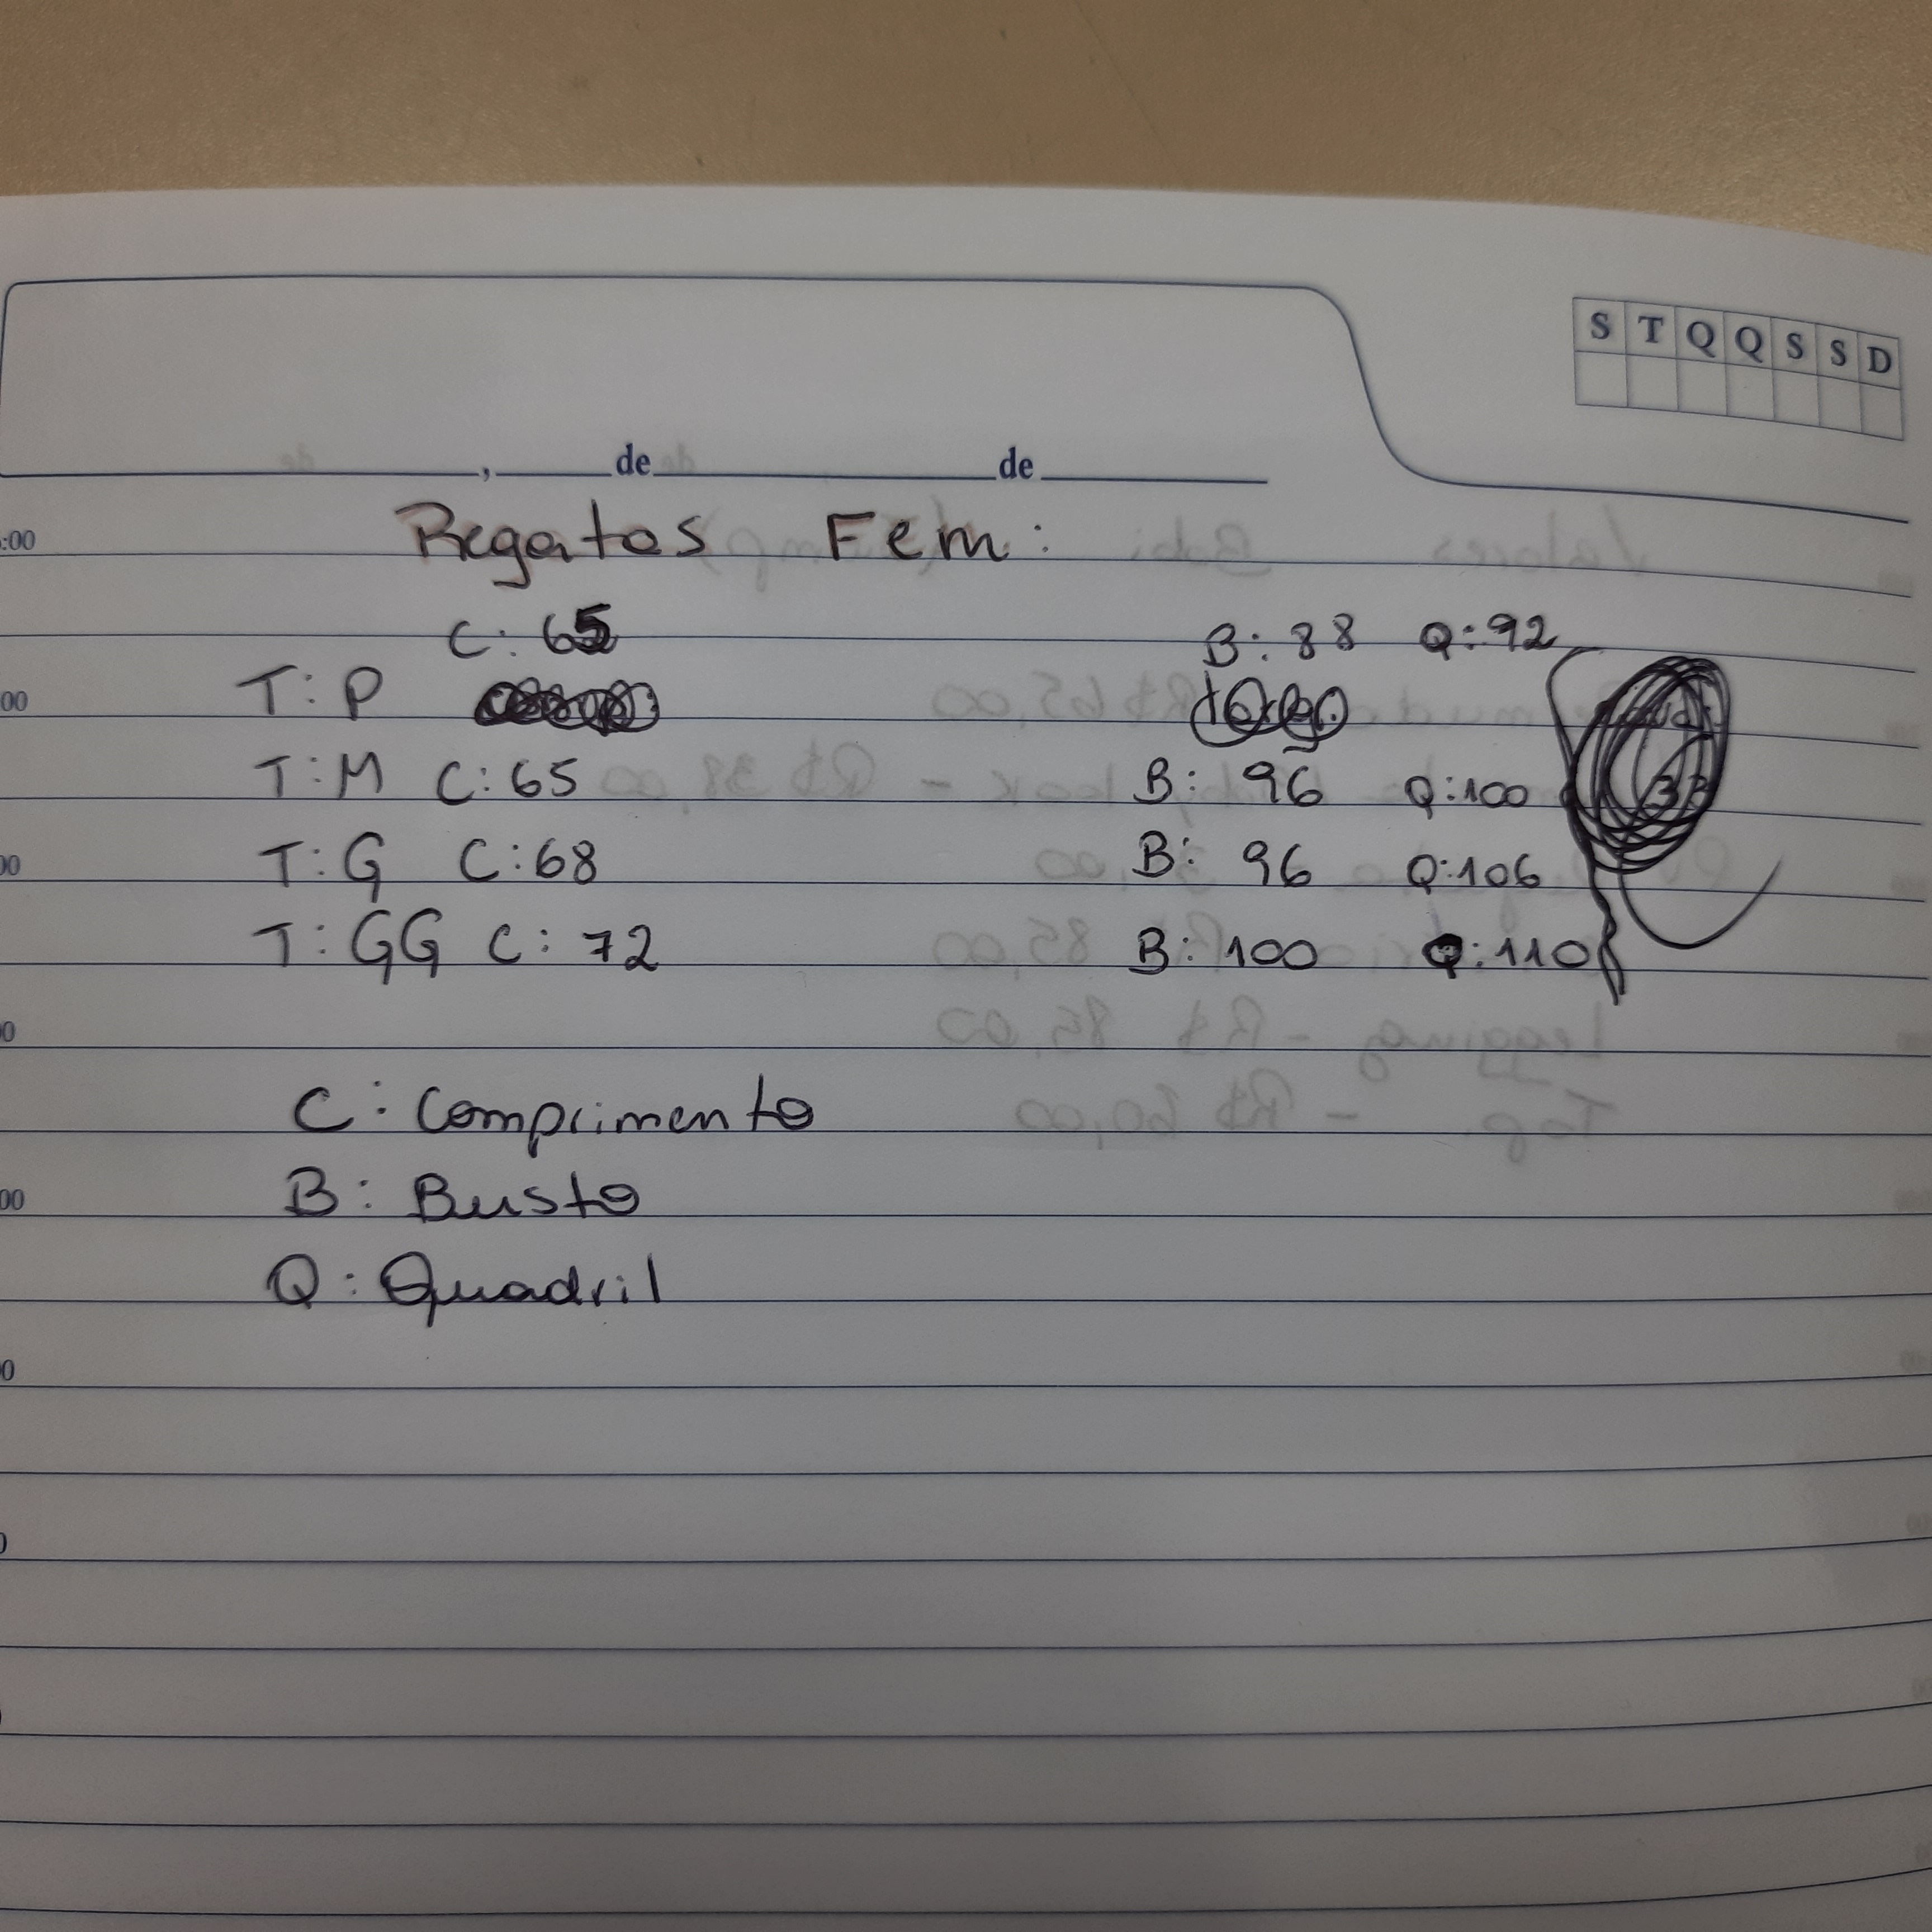 S T Q Q S S D
, de de
:00 Regatas Fem:
C: 65 B: 88 Q: 92
00 T: P
T: M C: 65 B: 96 Q: 100
00 T: G C: 68 B: 96 Q: 106
T: GG C: 72 B: 100 Q: 110
00
C: Comprimento
00 B: Busto
Q: Quadril
00